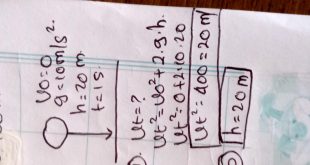 Vo=0
g=10m/s².
h=20m
t=1s.
Vt=?
Vt²=Vo²+2.g.h
Vt²=0+2.10.20
Vt²=400=20m
h=20m